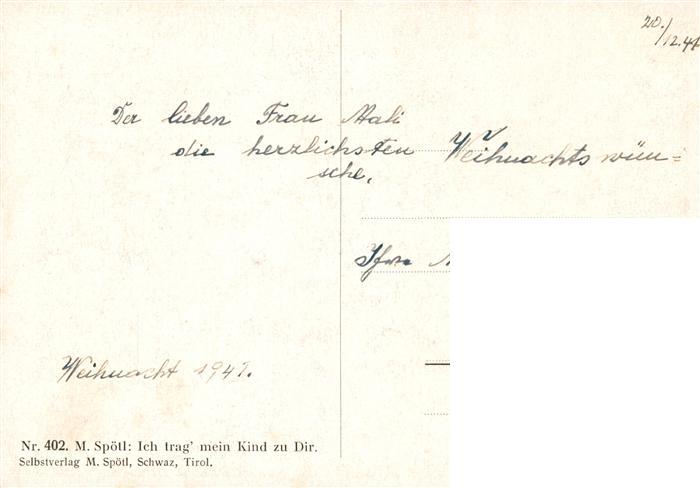 20./12.41
Der lieben Frau Mali
die herzlichsten Weihnachtswün=
sche.
Weihnacht 1941.
Nr. 402. M. Spötl: Ich trag' mein Kind zu Dir.
Selbstverlag M. Spötl, Schwaz, Tirol.